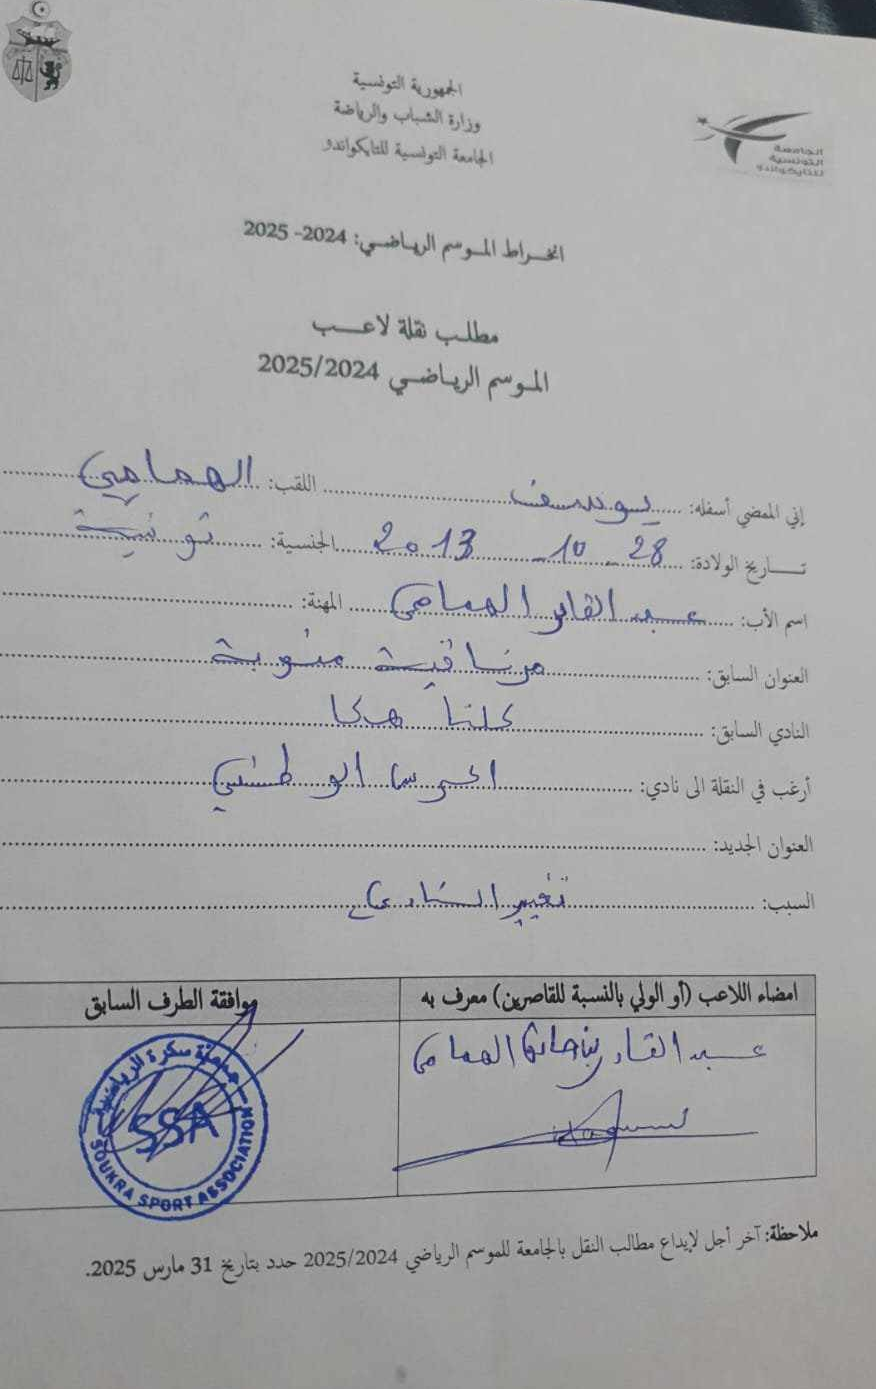 الجمهورية التونسية
وزارة الشباب والرياضة
الجامعة التونسية للتايكواندو
الجامعة
التونسية
للتايكواندو
انخراط الموسم الرياضي: 2024- 2025
مطلب نقلة لاعب
الموسم الرياضي 2025/2024
إني الممضي أسفله: يوسف اللقب: الهمامي
تاريخ الولادة: 28 - 10 - 2013 الجنسية: تونسية
اسم الأب: عبد القادر الهمامي المهنة:
العنوان السابق: مرناقية منوبة
النادي السابق:
أرغب في النقلة الى نادي: الحرس الوطني
العنوان الجديد:
السبب: تغيير النادي
امضاء اللاعب (أو الولي بالنسبة للقاصرين) معرف به
موافقة الطرف السابق
عبد القادر الهمامي
جمعية سكرة الرياضية
SSA
SOUKRA SPORT ASSOCIATION
ملاحظة: آخر أجل لإيداع مطالب النقل بالجامعة للموسم الرياضي 2025/2024 حدد بتاريخ 31 مارس 2025.